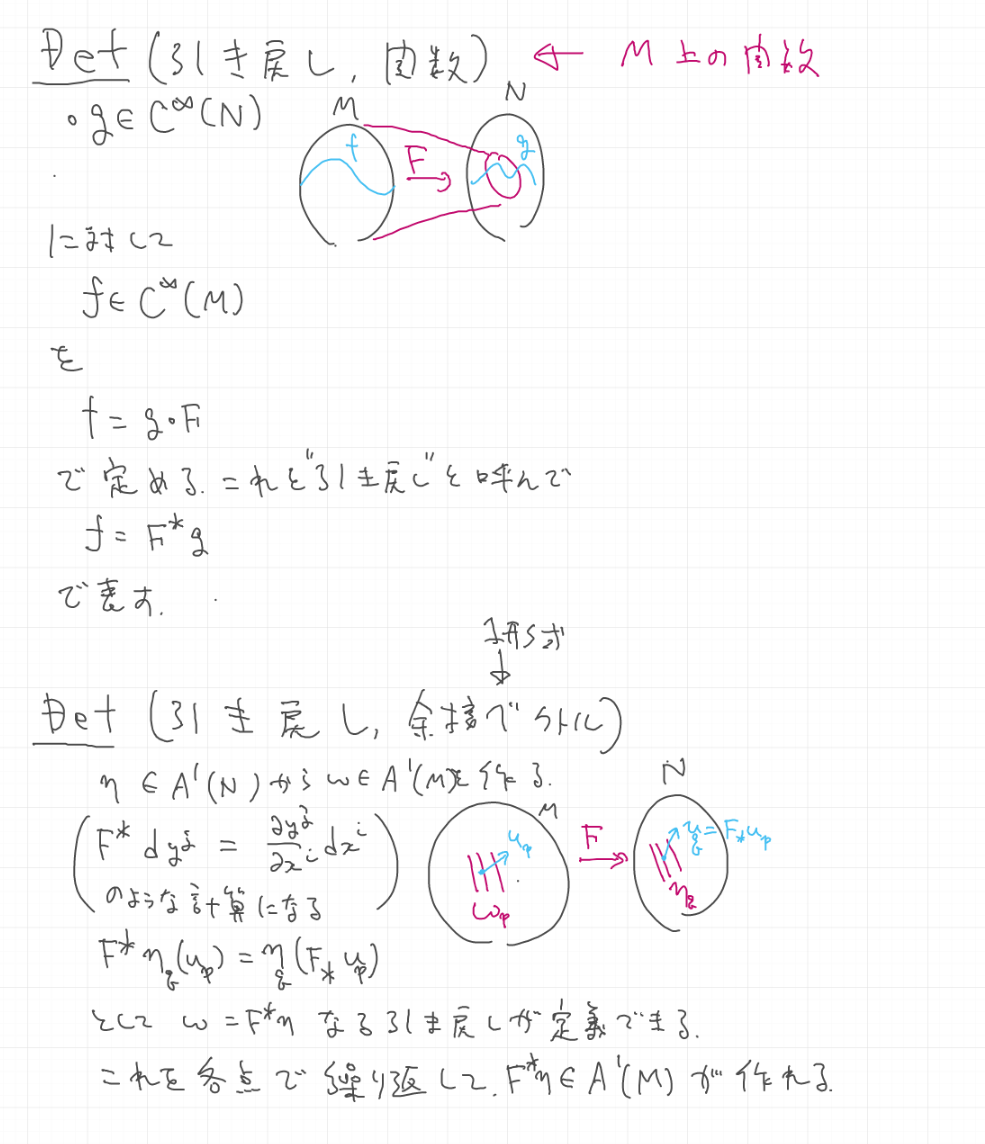 Def (引き戻し, 関数) ← M 上の関数
・g ∈ C^∞(N)
M
N
f
F
g
に対して
f ∈ C^∞(M)
を
f = g∘F
で定める. これを"引き戻し"と呼んで
f = F^* g
で表す.
1形式
↓
Def (引き戻し, 余接ベクトル)
η ∈ A^1(N) から ω ∈ A^1(M)を作る.
(F^* dy^j = ∂y^j/∂x^i dx^i
のような計算になる)
M
N
u_p
F
v_q = F_* u_p
ω_p
η_q
F^* η_q(u_p) = η_q(F_* u_p)
として ω = F^*η なる引き戻しが定義できる.
これを各点で繰り返して, F^*η ∈ A^1(M) が作れる.